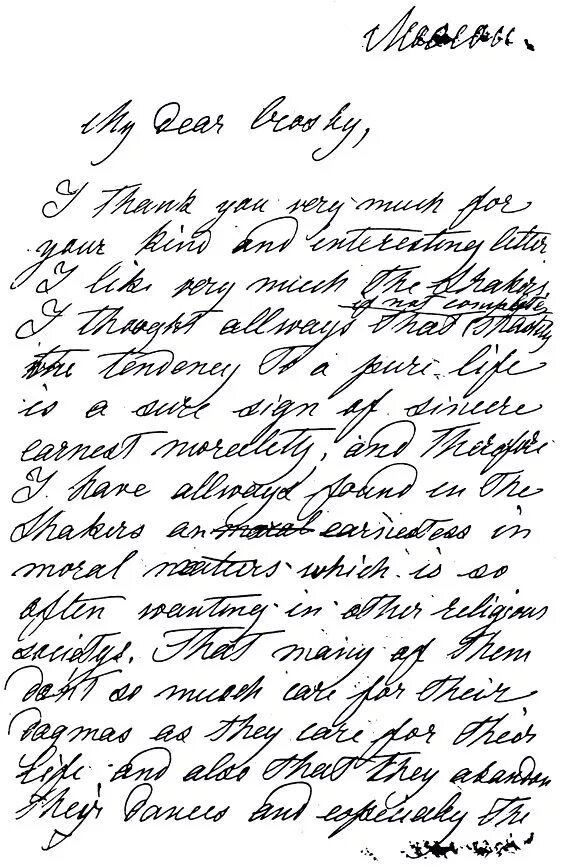 Moscou.
My Dear Crosby,
I thank you very much for
your kind and interesting letter
I like very much the Shakers
if not complete
I thought allways that chastity
the tendency to a pure life
is a sure sign of sincere
earnest morality, and therefore
I have allways found in the
Shakers an moral earnestess in
moral matters which is so
often wanting in other religious
societys. That many of them
dont so much care for their
dogmas as they care for their
life and also that they abandon
their dances and especially the